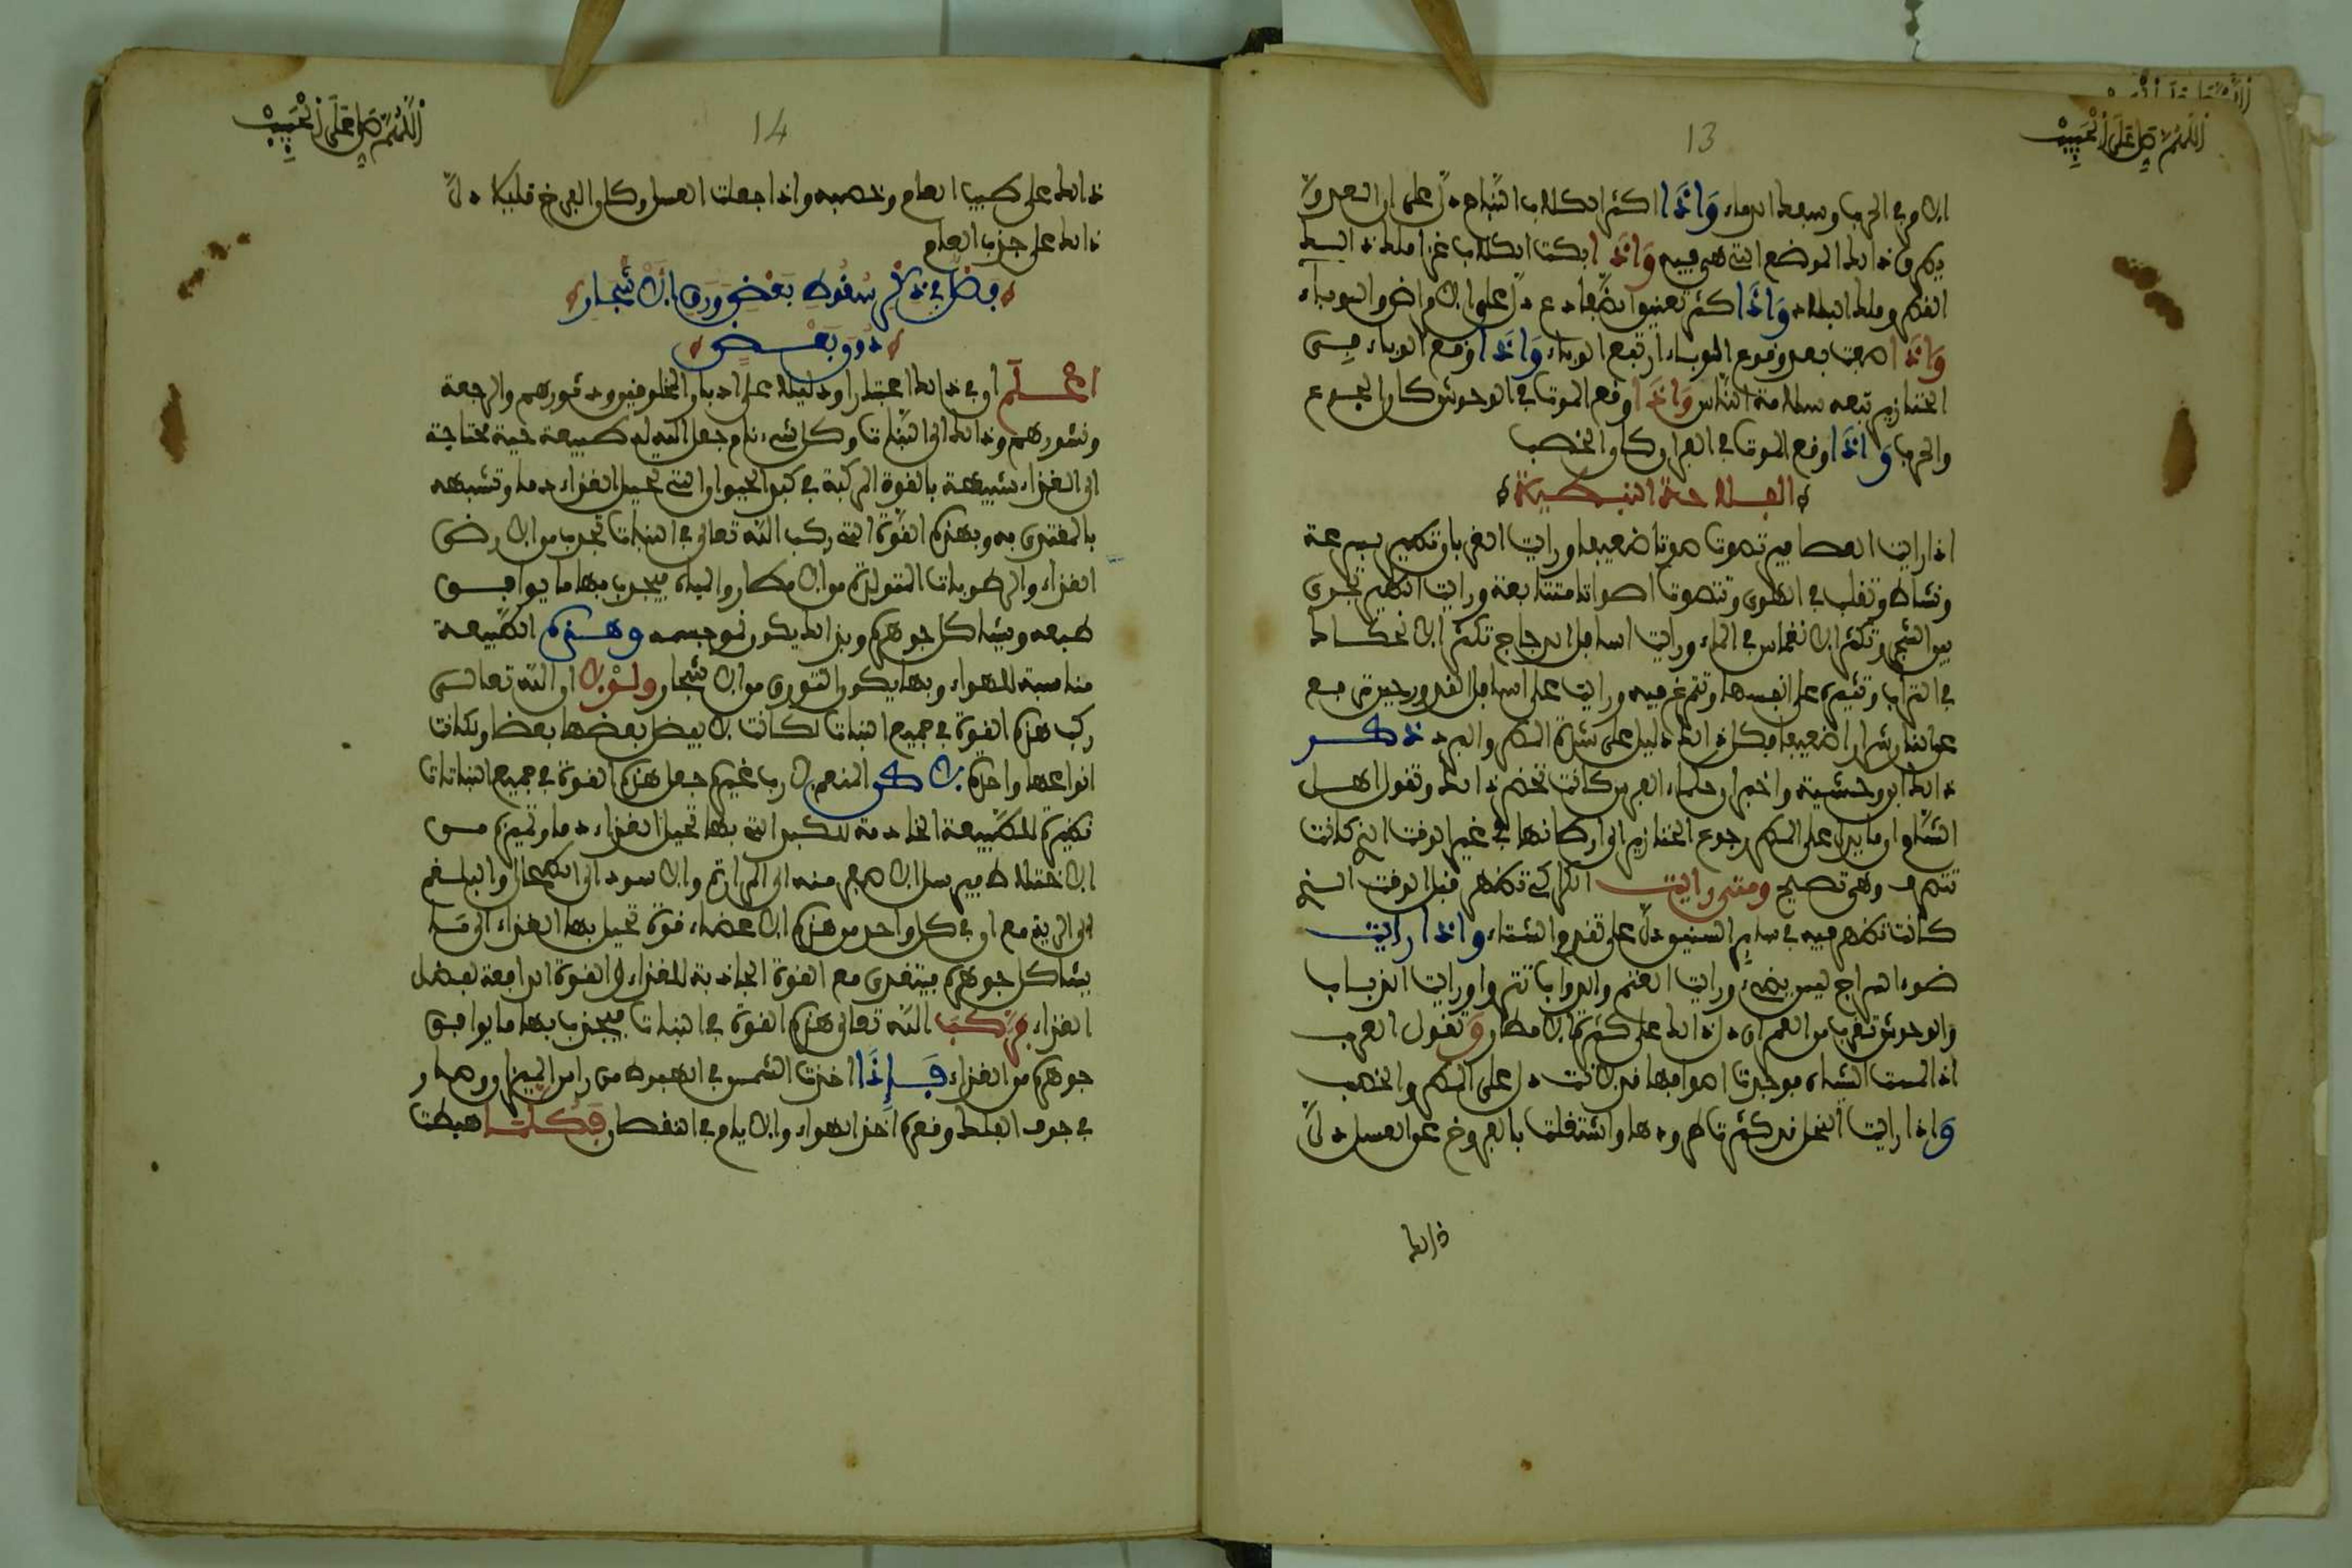 اللهم صل على الحبيب
13
الامر في الحرب وسبعك الدماء واذا اكثر الكلاب النباح دل على ان العدو
يطرق ذلك الموضع التي هي فيه واذا بكت الكلاب غزا ملك ذلك
القطر وملك البلاد واذا كثر نعيق الضفادع دل على الامراض والوباء
واذا بعد وقوع الوباء ارتفع الوباء واذا وقع الوباء في
الخنازير تبعه سلامة الناس واذا وقع الموت في الوحوش كان الجوع
والحرب واذا وقع الموت في الفار كان الخصب
الفلاحة النبطية
اذا رايت العصافير تصوت صوتا ضعيفا ورايت الغربان تطير بسرعة
ونشاط وتقلب في الهوى وتصوت اصواتا متتابعة ورايت الطير تجري
بين الشجر وتكثر الانغماس في الماء ورايت اسافل الدجاج تكثر الانحكاك
في التراب وتثيره على انفسها وتتمرغ فيه ورايت على اسافل القدور حين ترفع
عن النار شرارا ضعيفا فكل ذلك دليل على شدة المطر والبرد ذكر
ذلك ابن وحشية واخبار علماء الفرس كانت تحضر ذلك وتقول اهل
الشام ان ما يدل على المطر رجوع الخنازير الى اوطانها في غير الوقت التي كانت
تنصرف وهي تصيح ومتى رايت الكراكي تظهر قبل الوقت الذي
كانت تظهر فيه في ساير السنين دل على تقدم الشتاء واذا رايت
ضوء السراج ليس يضيء ورايت الغنم والدواب ورايت الذباب
والوحوش تقرب من العمران دل ذلك على كثرة الامطار وتقول العرب
اذا لمست الشياه فوجدت اصوافها قد لانت دل على المطر والخصب
واذا رايت النحل قد كثر طرودها واشتغلت بالفروخ عن العسل دل
ذلك
اللهم صل على الحبيب
14
ذلك على طيب العام وخصبه واذا جعلت العسل وكان الفرخ قليلا دل
ذلك على جدب العام
فصل في ذكر سقوط بعض ورق الاشجار
دون بعض
اعلم ان في ذلك اعتبارا ودليلا على ادبار المخلوقين ودثورهم والرجعة
ونشورهم وذلك ان النبات وكل شيء نام جعل الله له طبيعة حية محتاجة
الى الغذاء شبيهة بالقوة المركبة في كبد الحيوان التي تحيل الغذاء دما وتشبهه
بالمغتذي به وبهذه القوة التي ركب الله تعالى في النبات تجذب من الارض
الغذاء والرطوبات المتولدة من الامطار والمياه فيجذب بها ما يوافق
طبعه ويشاكل جوهره وبذلك يكون نمو جسمه وهذه الطبيعة
مناسبة للهواء وبها يكون التوريق من الاشجار ولولا ان الله تعالى
ركب هذه القوة في جميع النبات لكانت لا يفضل بعضها بعضا ولكانت
انواعها واحدة لاكن المنعم لا رب غيره جعل هذه القوة في جميع النباتات
نظيرة للطبيعة الخادمة للكبد التي بها تحيل الغذاء دما وتميزه من
الاختلاط فيرسل الاصفر منه الى المرارة والاسود الى الطحال والبلغم
الى الرية مع ان في كل واحد من هذه الاعضاء قوة تحيل بها الغذاء الى ما
يشاكل جوهره فيتغذى مع القوة الجاذبة للغذاء والقوة الدافعة لفضل
الغذاء فركب الله تعالى هذه القوة في النبات فيجذب بها ما يوافق
جوهره من الغذاء فإذا اخذت الشمس في الهبوط من راس الميزان وصار
في جوف الفلك وقصره اخذ الهواء والايام في النقصان فكلما هبطت